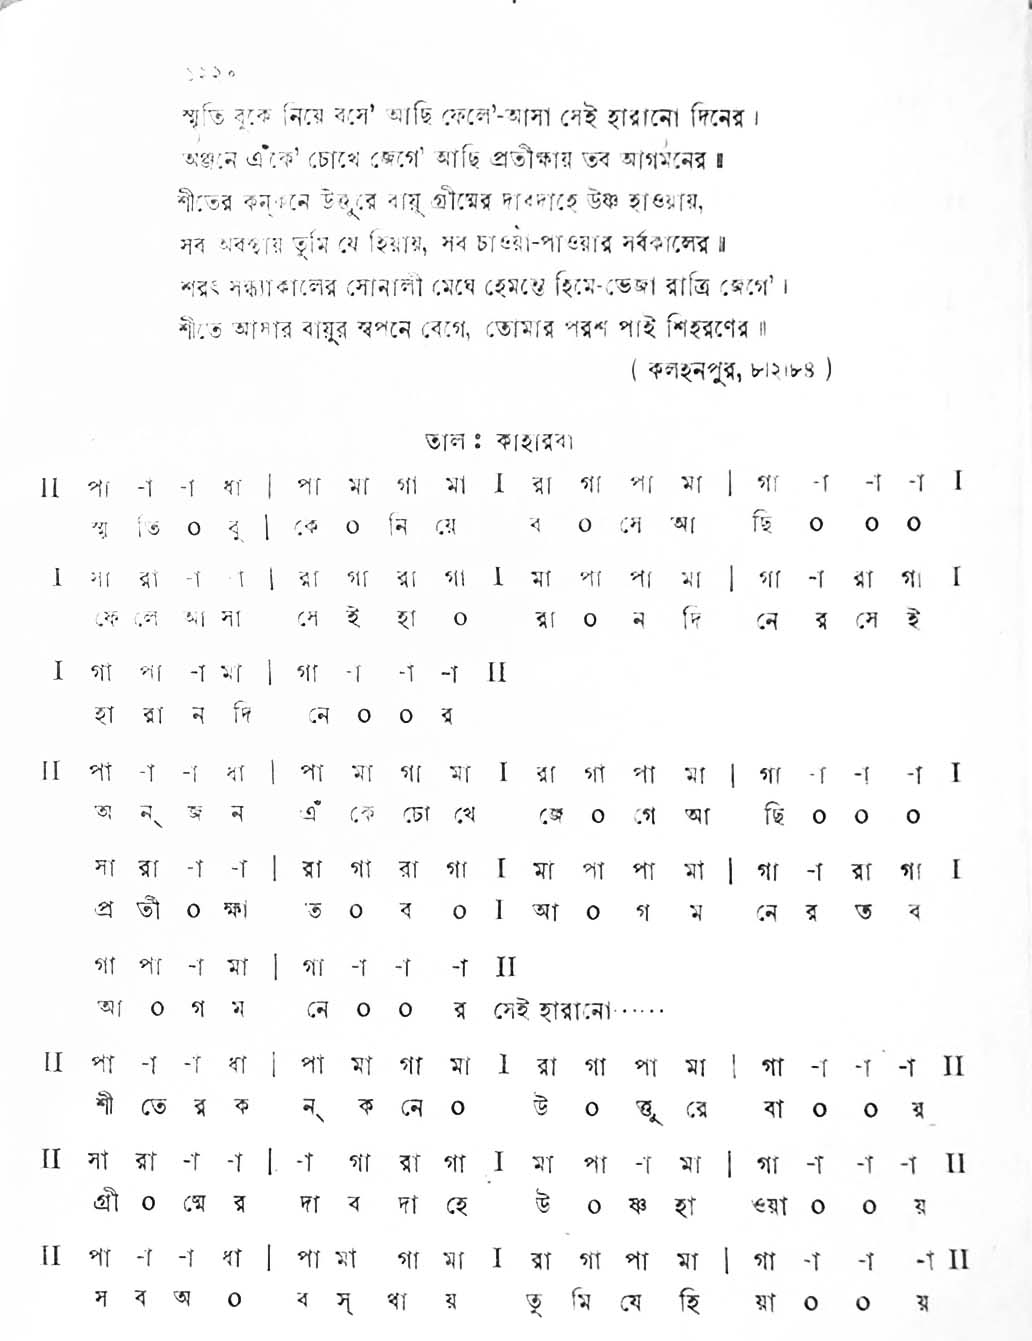 ১২২০
স্মৃতি বুকে নিয়ে বসে' আছি ফেলে'-আসা সেই হারানো দিনের।
অঞ্জনে এঁকে' চোখে জেগে' আছি প্রতীক্ষায় তব আগমনের॥
শীতের কন্‌কনে উত্তুরে বায়ু গ্রীষ্মের দাবদাহে উষ্ণ হাওয়ায়,
সব অবস্থায় তুমি যে হিয়ায়, সব চাওয়া-পাওয়ার সর্বকালের॥
শরৎ সন্ধ্যাকালের সোনালী মেঘে হেমন্তে হিমে-ভেজা রাত্রি জেগে'।
শীতে আসার বায়ুর স্বপনে বেগে, তোমার পরশ পাই শিহরণের॥
( কলহনপুর, ৮।২।৮৪ )
তাল : কাহারবা
II পা -া -া ধা | পা মা গা মা I রা গা পা মা | গা -া -া -া I
স্মৃ তি ০ বু | কে ০ নি য়ে ব ০ সে আ ছি ০ ০ ০
I সা রা -া -া | রা গা রা গা I মা পা পা মা | গা -া রা গা I
ফে লে আ সা সে ই হা ০ রা ০ ন দি নে র সে ই
I গা পা -া মা | গা -া -া -া II
হা রা ন দি নে ০ ০ র
II পা -া -া ধা | পা মা গা মা I রা গা পা মা | গা -া -া -া I
অ ন্ জ ন এঁ কে চো খে জে ০ গে আ ছি ০ ০ ০
সা রা -া -া | রা গা রা গা I মা পা পা মা | গা -া রা গা I
প্র তী ০ ক্ষা ত ০ ব ০ I আ ০ গ ম নে র ত ব
গা পা -া মা | গা -া -া -া II
আ ০ গ ম নে ০ ০ র সেই হারানো······
II পা -া -া ধা | পা মা গা মা I রা গা পা মা | গা -া -া -া II
শী তে র ক ন্ ক নে ০ উ ০ ত্তু রে বা ০ ০ য়
II সা রা -া -া | -া গা রা গা I মা পা -া মা | গা -া -া -া II
গ্রী ০ ষ্মে র দা ব দা হে উ ০ ষ্ণ হা ওয়া ০ ০ য়
II পা -া -া ধা | পা মা গা মা I রা গা পা মা | গা -া -া -া II
স ব অ ০ ব স্ থা য় তু মি যে হি য়া ০ ০ য়